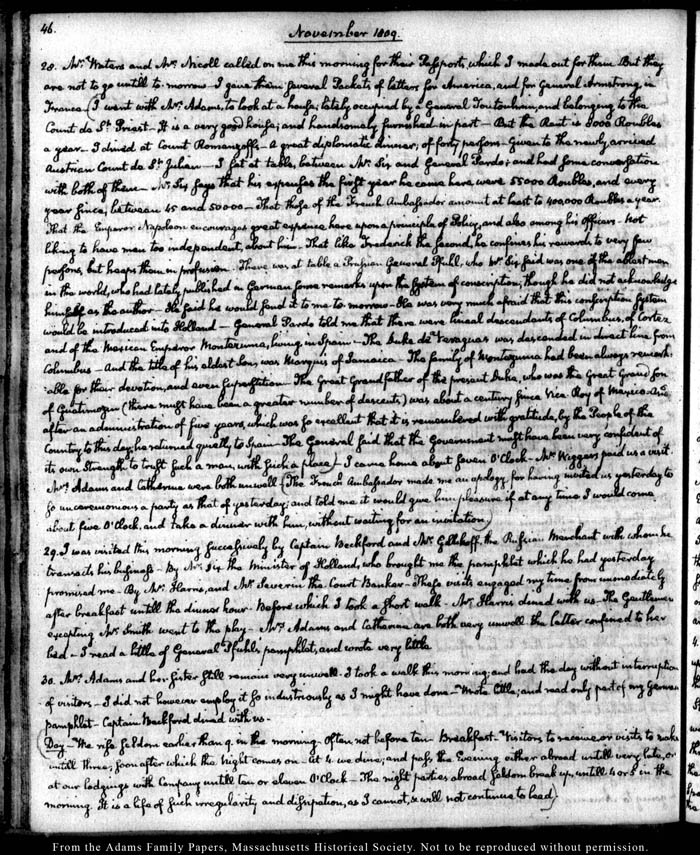 46.
November 1809.
28. Mr. Waters and Mr. Nicoll called on me this morning for their Passports, which I made out for them But they
are not to go untill to-morrow. I gave them several Packets of letters for America, and for General Armstrong in
France. (I went with Mrs. Adams, to look at a house, lately occupied by a General and belonging to the
Count de St. Priest — It is a very good house; and handsomely furnished in part — But the Rent is 8000 Roubles
a year — I dined at Count Romanzoff's — A great diplomatic dinner; of forty persons — Given to the newly arrived
Austrian Count de St. Julien — I sat at table, between Mr. Six and General Pardo; and had some conversation
with both of them — Mr. Six says that his expenses the first year he came here were 55000 Roubles, and every
year since, between 45 and 50000 — That those of the French Ambassador amount at least to 400,000 Roubles a year.
That the Emperor Napoleon encourages great expence here upon a principle of Policy, and also among his officers. Not
liking to have men too independent, about him. That like Frederick the second, he confines his rewards to very few
persons, but heaps them in profusion. There was at table a Prussian General Pfuhl, who Mr. Six said was one of the ablest men
in the world, who had lately published in German some remarks upon the System of conscription; though he did not acknowledge
himself as the author — He said he would send it to me to-morrow — He was very much afraid that this conscription system
would be introduced into Holland — General Pardo told me that there were lineal descendants of Columbus, of Cortez
and of the Mexican Emperor Montezuma, living in Spain — The Duke de Varaguas was descended in direct line from
Columbus — And the title of his eldest Son, was Marquis of Jamaica — The family of Montezuma had been always remark-
able for their devotion, and even superstition — The Great Grandfather of the present Duke, who was the Great Grand Son
of Guatimozin (there must have been a greater number of descents) was about a century since Vice Roy of Mexico. And
after an administration of five years, which was so excellent that it is remembered with gratitude, by the People of the
Country to this day, he returned quietly to Spain — The General said that the Government must have been very confident of
its own Strength to trust such a man, with such a place) — I came home about seven O'Clock — Mr. Wiggers paid us a visit
Mrs. Adams and Catherine were both unwell (The French Ambassador made me an apology for having invited us yesterday to
so unceremonious a party as that of yesterday; and told me it would give him pleasure if at any time I would come
about five O'Clock, and take a dinner with him, without waiting for an invitation)
29. I was visited this morning successively by Captain Beckford and Mr. the Russian Merchant with whom he
transacts his business — By Mr. Six the Minister of Holland, who brought me the pamphlet which he had yesterday
promised me — By Mr. Harris, and Mr. Severin the Court Banker — These visits engaged my time from immediately
after breakfast untill the dinner hour — Before which I took a short walk — Mr. Harris dined with us — The Gentlemen
excepting Mr. Smith went to the play — Mrs. Adams and Catherine are both very unwell the latter confined to her
bed — I read a little of General Pfuhl's pamphlet, and wrote very little
30. Mrs. Adams and her Sister still remain very unwell. I took a walk this morning; and had the day without interruption
of visitors — I did not however employ it so industriously as I might have done — Wrote little; and read only part of my German
pamphlet — Captain Beckford dined with us —
(Day — We rise seldom earlier than 9. in the morning — Often not before ten — Breakfast — Visitors to receive, or visits to make
untill three; soon after which the night comes on — At 4. we dine; and pass the Evening either abroad untill very late, or
at our lodgings with Company untill ten or eleven O'Clock — The night parties abroad seldom break up, untill 4 or 5 in the
morning. It is a life of such irregularity and dissipation, as I cannot, & will not continue to lead.)
From the Adams Family Papers, Massachusetts Historical Society. Not to be reproduced without permission.